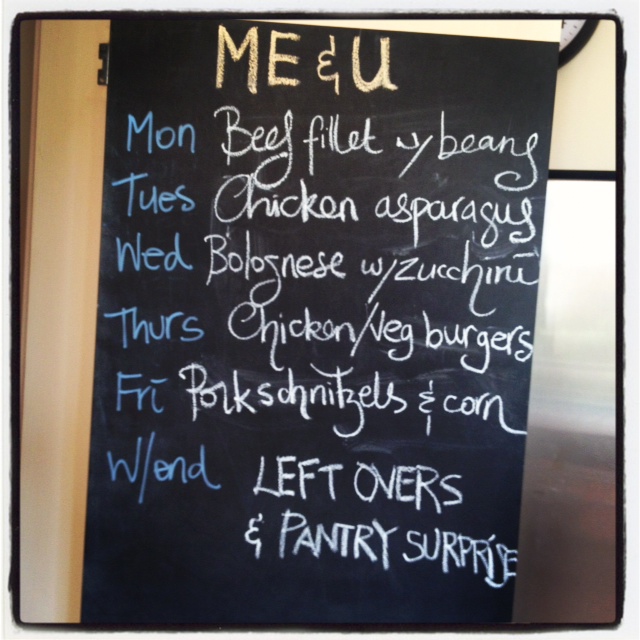 ME & U
Mon Beef fillet w/ beans
Tues Chicken asparagus
Wed Bolognese w/zucchini
Thurs Chicken/Veg burgers
Fri Pork schnitzels & corn
W/end LEFT OVERS
& PANTRY SURPRISE